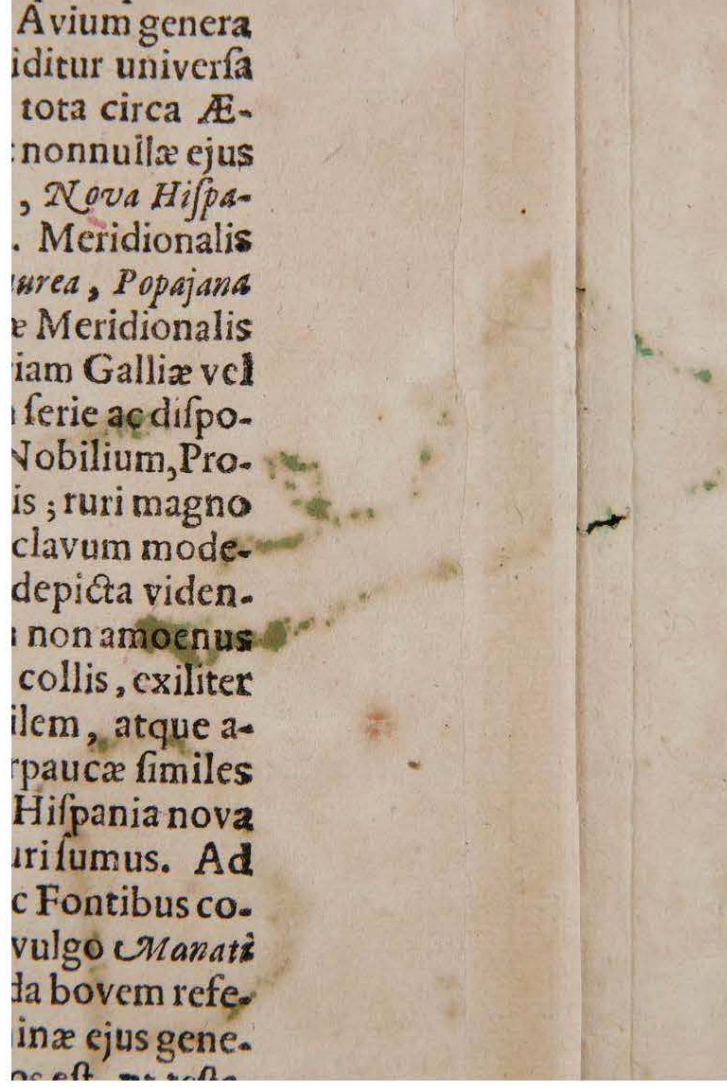 Avium genera
iditur univerſa
tota circa Æ-
nonnullæ ejus
, Nova Hiſpa-
. Meridionalis
urea, Popajana
æ Meridionalis
iam Galliæ vel
ſerie ac diſpo-
Nobilium, Pro-
is; ruri magno
clavum mode-
depicta viden-
non amoenus
collis, exiliter
ilem, atque a-
rpaucæ ſimiles
Hiſpania nova
uri ſumus. Ad
c Fontibus co-
vulgo Manati
da bovem refe-
inæ ejus gene-
os eſt, ut teſta-